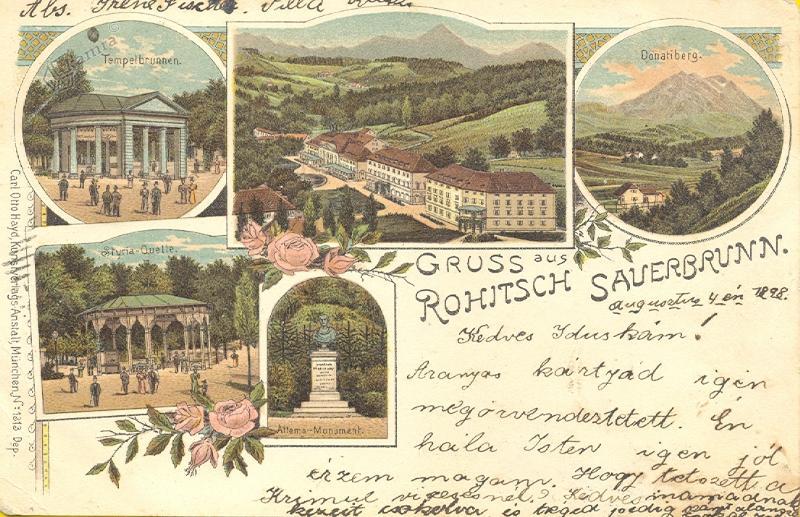 Abs. Irene Fischer. Villa
Tempelbrunnen.
Donatiberg.
Styria-Quelle.
Attems-Monument.
GRUSS aus
ROHITSCH SAUERBRUNN.
Carl Otto Hayd, Kunstverlags-Anstalt, München, Nº 1313 Dep.
augusztus 4 én 1898.
Kedves Iduskám!
Aranyos kártyád igen
megörvendeztetett. Én
hála Isten igen jól
érzem magam. Hogy tetszett a
Krimul vizezésnel? Kedves mamádnak
kezeit csókolva és téged pedig